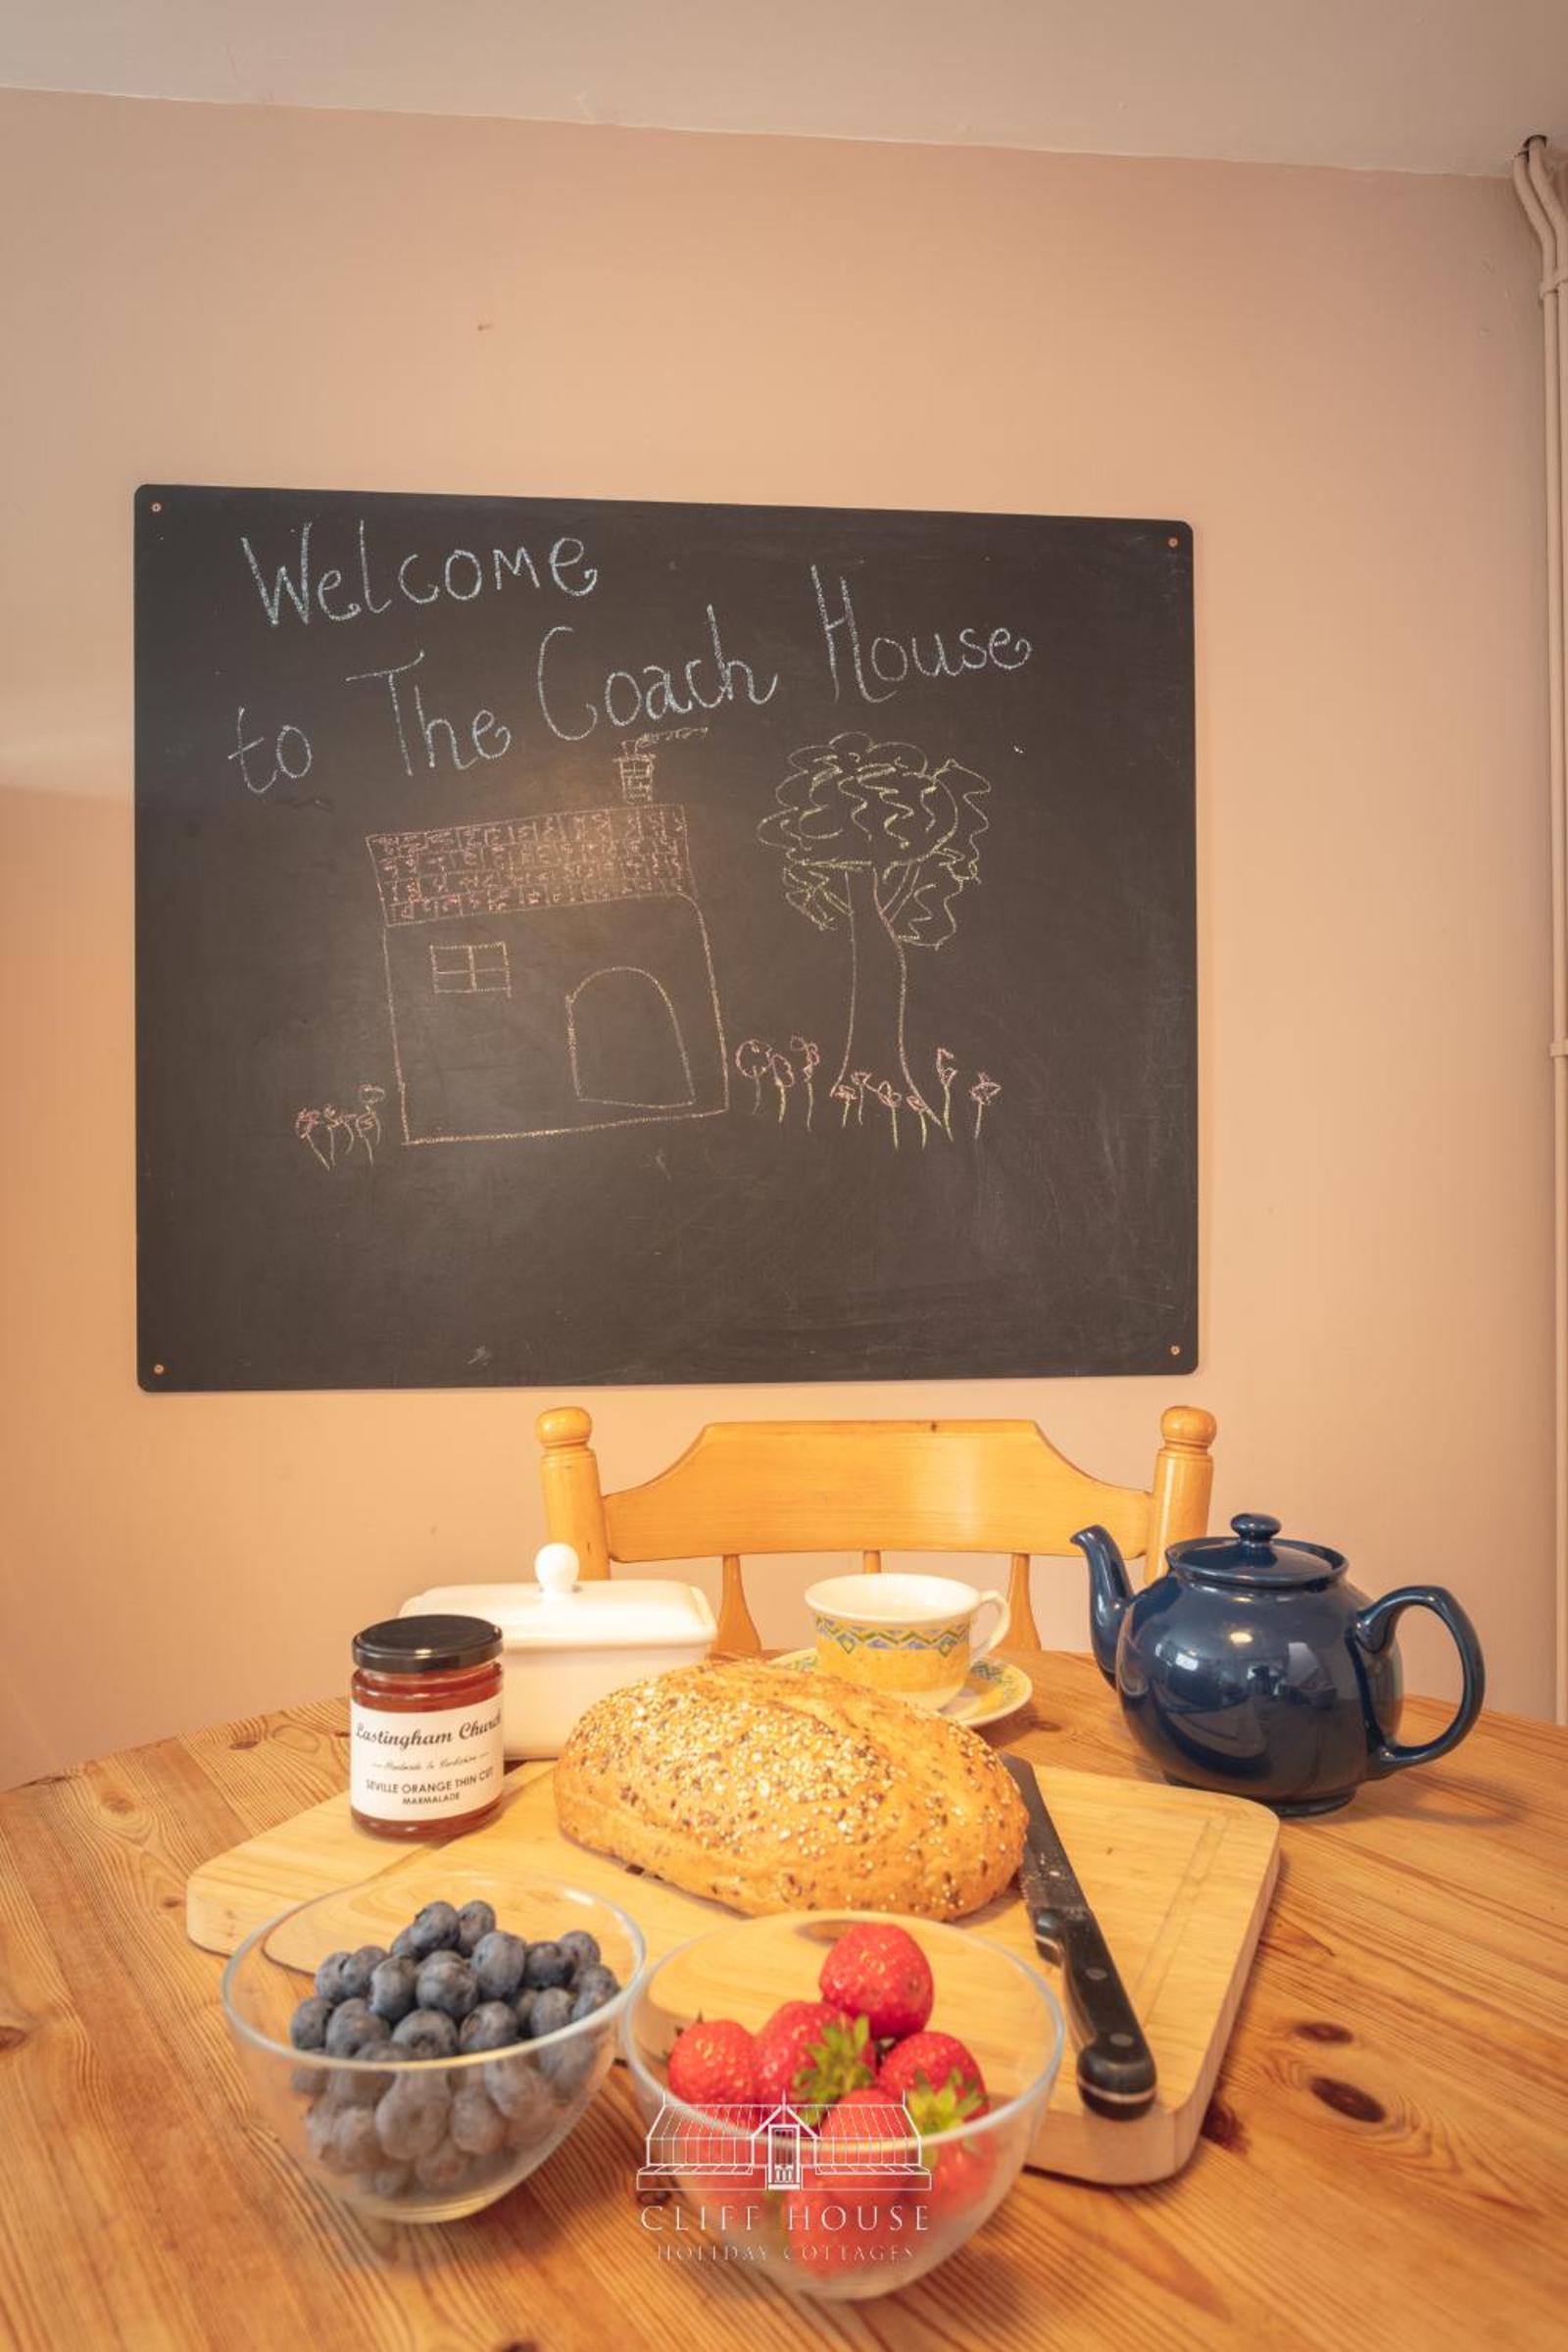 Welcome
to The Coach House
Lastingham Church
Made in Yorkshire
SEVILLE ORANGE THIN CUT
MARMALADE
CLIFF HOUSE
HOLIDAY COTTAGES